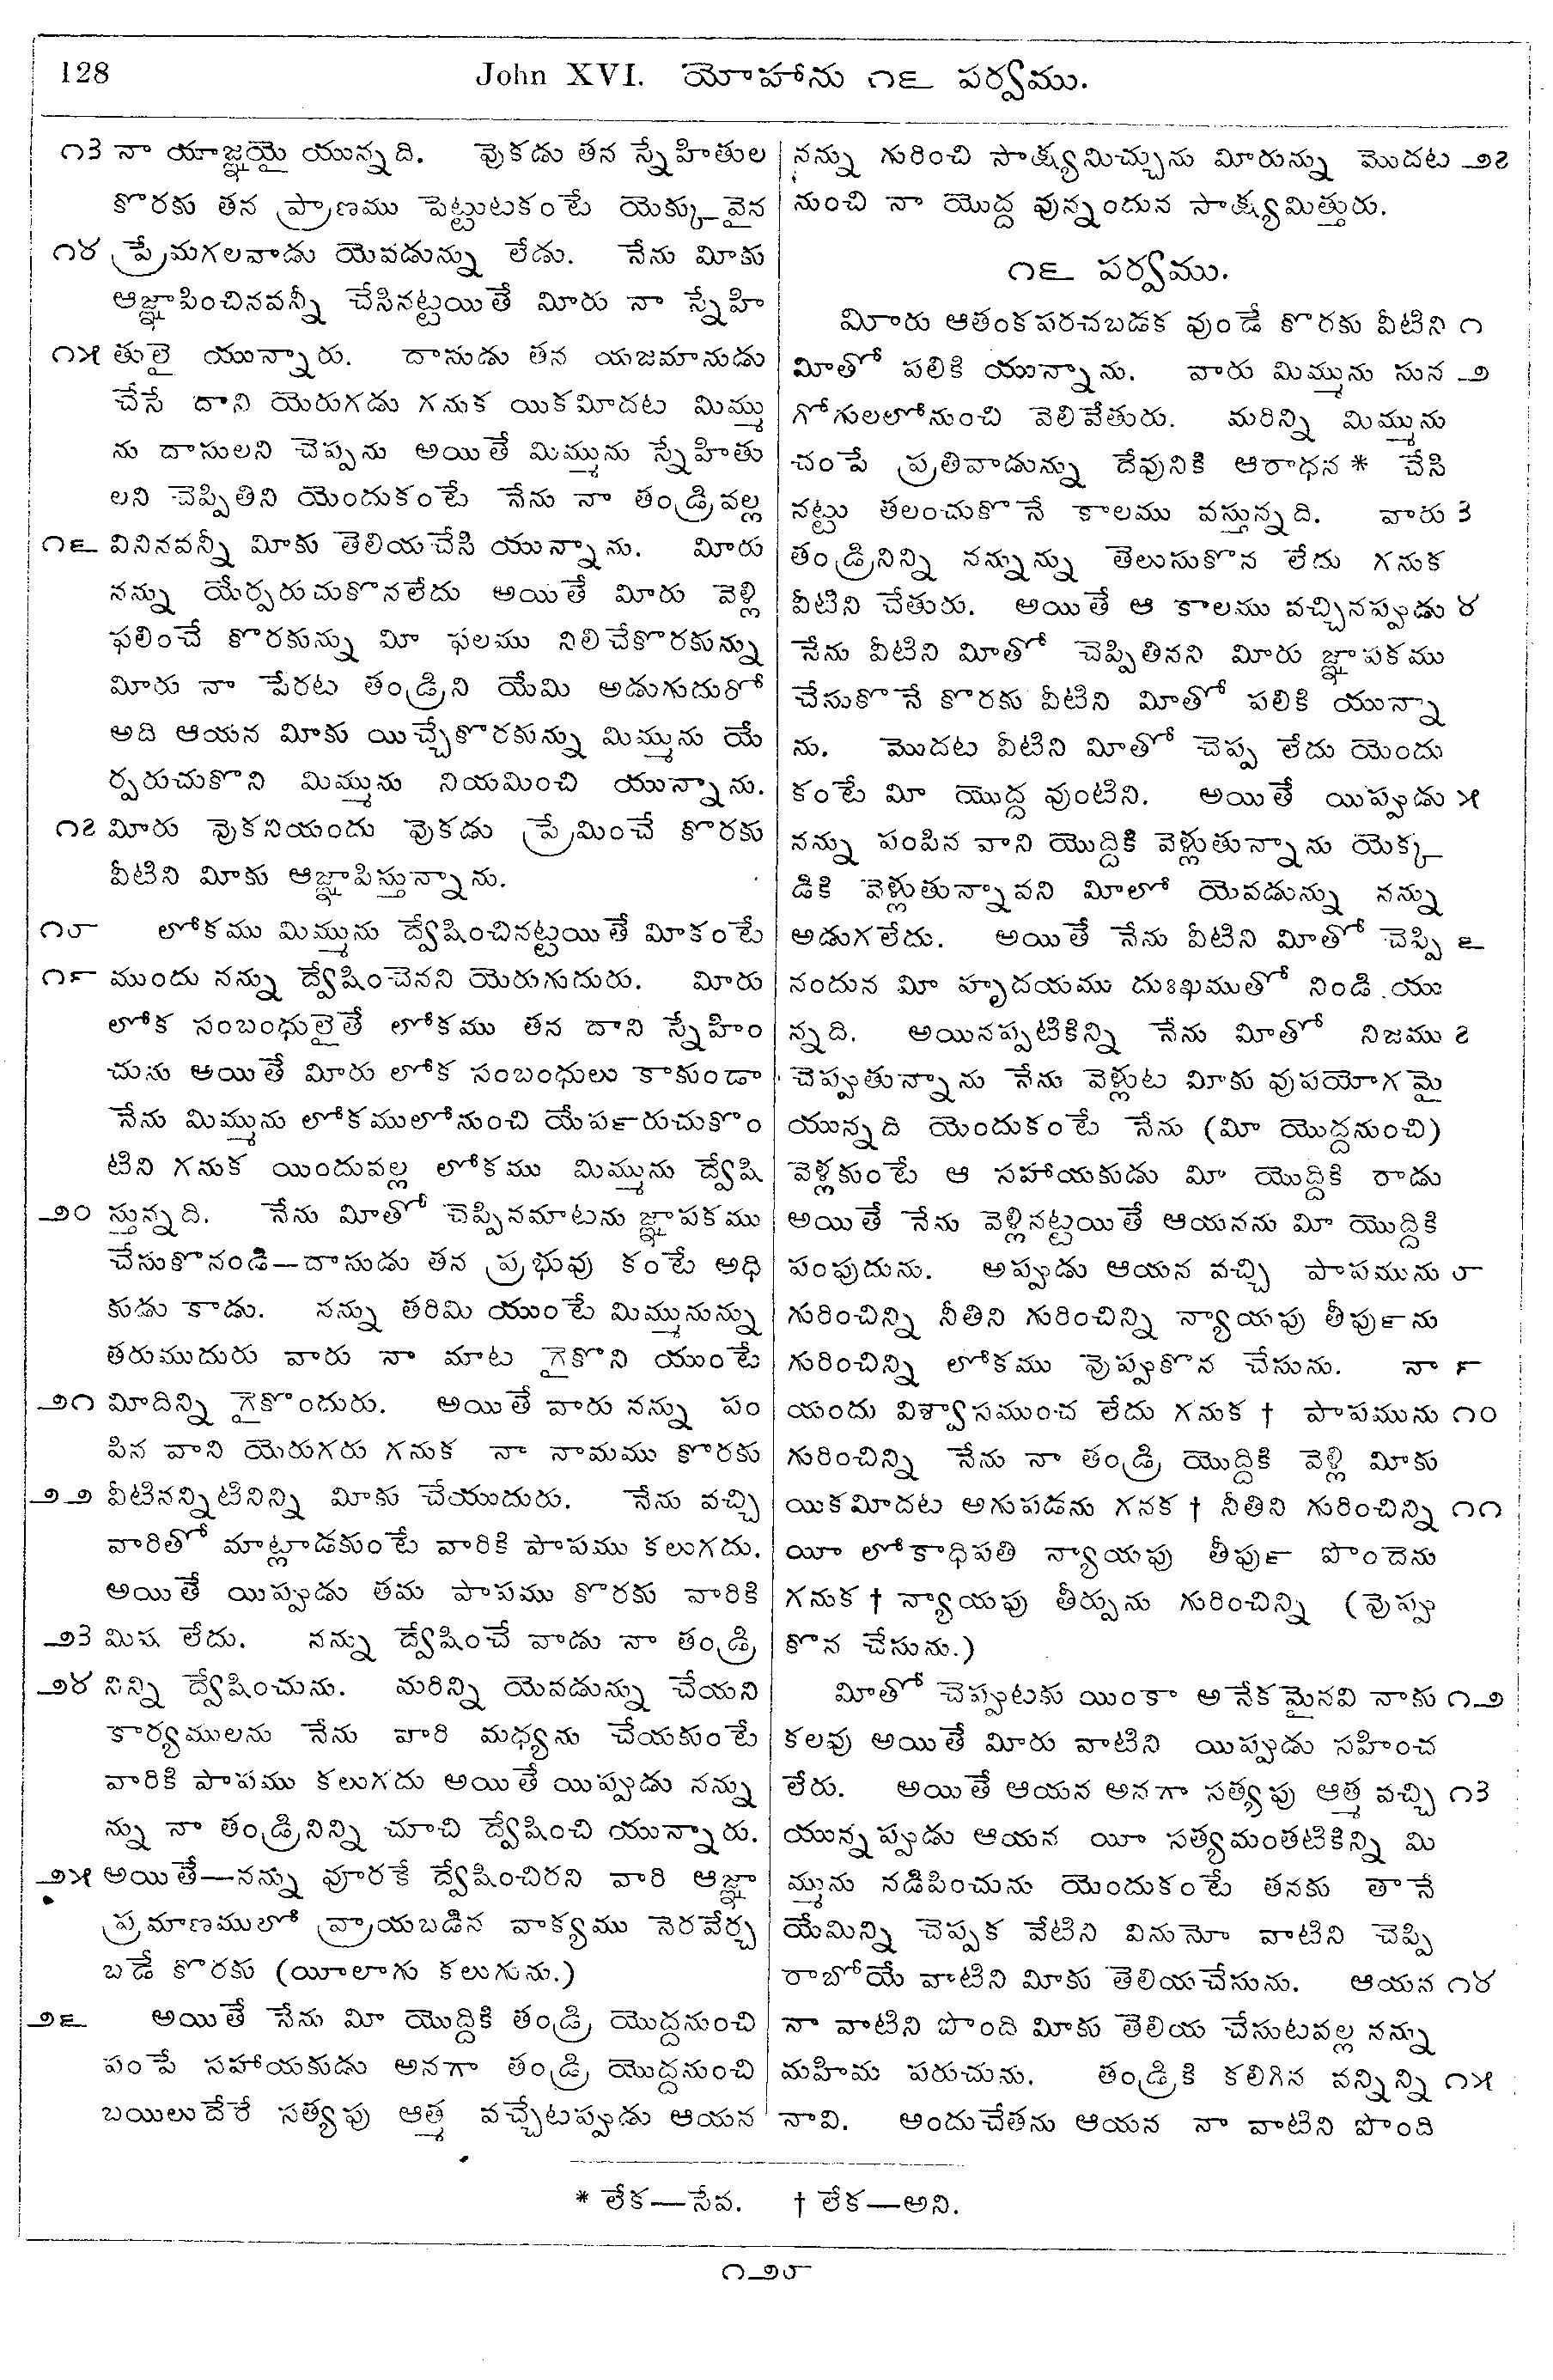 128
John XVI. యోహాను ౧౬ పర్వము.
౧౩ నా యాజ్ఞయై యున్నది. వొకడు తన స్నేహితుల
కొరకు తన ప్రాణము పెట్టుటకంటే యెక్కువైన
౧౪ ప్రేమగలవాడు యెవడున్ను లేడు. నేను మీకు
ఆజ్ఞాపించినవన్నీ చేసినట్టయితే మీరు నా స్నేహి
౧౫ తులై యున్నారు. దాసుడు తన యజమానుడు
చేసే దాని యెరుగడు గనుక యికమీదట మిమ్ము
ను దాసులని చెప్పను అయితే మిమ్మును స్నేహితు
లని చెప్పితిని యెందుకంటే నేను నా తండ్రివల్ల
౧౬ వినినవన్నీ మీకు తెలియచేసి యున్నాను. మీరు
నన్ను యేర్పరుచుకొనలేదు అయితే మీరు వెళ్లి
ఫలించే కొరకున్ను మీ ఫలము నిలిచేకొరకున్ను
మీరు నా పేరట తండ్రిని యేమి అడుగుదురో
అది ఆయన మీకు యిచ్చేకొరకున్ను మిమ్మును యే
ర్పరుచుకొని మిమ్మును నియమించి యున్నాను.
౧౭ మీరు వొకనియందు వొకడు ప్రేమించే కొరకు
వీటిని మీకు ఆజ్ఞాపిస్తున్నాను.
౧౮ లోకము మిమ్మును ద్వేషించినట్టయితే మీకంటే
౧౯ ముందు నన్ను ద్వేషించెనని యెరుగుదురు. మీరు
లోక సంబంధులైతే లోకము తన దాని స్నేహిం
చును అయితే మీరు లోక సంబంధులు కాకుండా
నేను మిమ్మును లోకములోనుంచి యేపఁరుచుకొం
టిని గనుక యిందువల్ల లోకము మిమ్మును ద్వేషి
౨౦ స్తున్నది. నేను మీతో చెప్పినమాటను జ్ఞాపకము
చేసుకొనండి—దాసుడు తన ప్రభువు కంటే అధి
కుడు కాడు. నన్ను తరిమి యుంటే మిమ్మునున్ను
తరుముదురు వారు నా మాట గైకొని యుంటే
౨౧ మీదిన్ని గైకొందురు. అయితే వారు నన్ను పం
పిన వాని యెరుగరు గనుక నా నామము కొరకు
౨౨ వీటినన్నిటినిన్ని మీకు చేయుదురు. నేను వచ్చి
వారితో మాట్లాడకుంటే వారికి పాపము కలుగదు.
అయితే యిప్పుడు తమ పాపము కొరకు వారికి
౨౩ మిష లేదు. నన్ను ద్వేషించే వాడు నా తండ్రి
౨౪ నిన్ని ద్వేషించును. మరిన్ని యెవడున్ను చేయని
కార్యములను నేను వారి మధ్యను చేయకుంటే
వారికి పాపము కలుగదు అయితే యిప్పుడు నన్ను
న్ను నా తండ్రినిన్ని చూచి ద్వేషించి యున్నారు.
౨౫ అయితే—నన్ను వూరకే ద్వేషించిరని వారి ఆజ్ఞా
ప్రమాణములో వ్రాయబడిన వాక్యము నెరవేర్చ
బడే కొరకు (యీలాగు కలుగును.)
౨౬ అయితే నేను మీ యొద్దికి తండ్రి యొద్దనుంచి
పంపే సహాయకుడు అనగా తండ్రి యొద్దనుంచి
బయిలుదేరే సత్యపు ఆత్మ వచ్చేటప్పుడు ఆయన
నన్ను గురించి సాక్ష్యమిచ్చును మీరున్ను మొదట ౨౭
నుంచి నా యొద్ద వున్నందున సాక్ష్యమిత్తురు.
౧౬ పర్వము.
మీరు ఆతంకపరచబడక వుండే కొరకు వీటిని ౧
మీతో పలికి యున్నాను. వారు మిమ్మును సున ౨
గోగులలోనుంచి వెలివేతురు. మరిన్ని మిమ్మును
చంపే ప్రతివాడున్ను దేవునికి ఆరాధన* చేసి
నట్టు తలంచుకొనే కాలము వస్తున్నది. వారు ౩
తండ్రినిన్ని నన్నున్ను తెలుసుకొన లేదు గనుక
వీటిని చేతురు. అయితే ఆ కాలము వచ్చినప్పుడు ౪
నేను వీటిని మీతో చెప్పితినని మీరు జ్ఞాపకము
చేసుకొనే కొరకు వీటిని మీతో పలికి యున్నా
ను. మొదట వీటిని మీతో చెప్ప లేదు యెందు
కంటే మీ యొద్ద వుంటిని. అయితే యిప్పుడు ౫
నన్ను పంపిన వాని యొద్దికి వెళ్లుతున్నాను యెక్క
డికి వెళ్లుతున్నావని మీలో యెవడున్ను నన్ను
అడుగలేదు. అయితే నేను వీటిని మీతో చెప్పి ౬
నందున మీ హృదయము దుఃఖముతో నిండి యు
న్నది. అయినప్పటికిన్ని నేను మీతో నిజము ౭
చెప్పుతున్నాను నేను వెళ్లుట మీకు వుపయోగమై
యున్నది యెందుకంటే నేను (మీ యొద్దనుంచి)
వెళ్లకుంటే ఆ సహాయకుడు మీ యొద్దికి రాడు
అయితే నేను వెళ్లినట్టయితే ఆయనను మీ యొద్దికి
పంపుదును. అప్పుడు ఆయన వచ్చి పాపమును ౮
గురించిన్ని నీతిని గురించిన్ని న్యాయపు తీపుఁను
గురించిన్ని లోకము వొప్పుకొన చేసును. నా ౯
యందు విశ్వాసముంచ లేదు గనుక † పాపమును ౧౦
గురించిన్ని నేను నా తండ్రి యొద్దికి వెళ్లి మీకు
యికమీదట అగుపడను గనక † నీతిని గురించిన్ని ౧౧
యీ లోకాధిపతి న్యాయపు తీపుఁ పొందెను
గనుక † న్యాయపు తీర్పును గురించిన్ని (వొప్పు
కొన చేసును.)
మీతో చెప్పుటకు యింకా అనేకమైనవి నాకు ౧౨
కలవు అయితే మీరు వాటిని యిప్పుడు సహించ
లేరు. అయితే ఆయన అనగా సత్యపు ఆత్మ వచ్చి ౧౩
యున్నప్పుడు ఆయన యీ సత్యమంతటికిన్ని మి
మ్మును నడిపించును యెందుకంటే తనకు తానే
యేమిన్ని చెప్పక వేటిని వినునో వాటిని చెప్పి
రాబోయే వాటిని మీకు తెలియచేసును. ఆయన ౧౪
నా వాటిని పొంది మీకు తెలియ చేసుటవల్ల నన్ను
మహిమ పరుచును. తండ్రికి కలిగిన వన్నిన్ని ౧౫
నావి. అందుచేతను ఆయన నా వాటిని పొంది
* లేక—సేవ. † లేక—అని.
౧౨౮